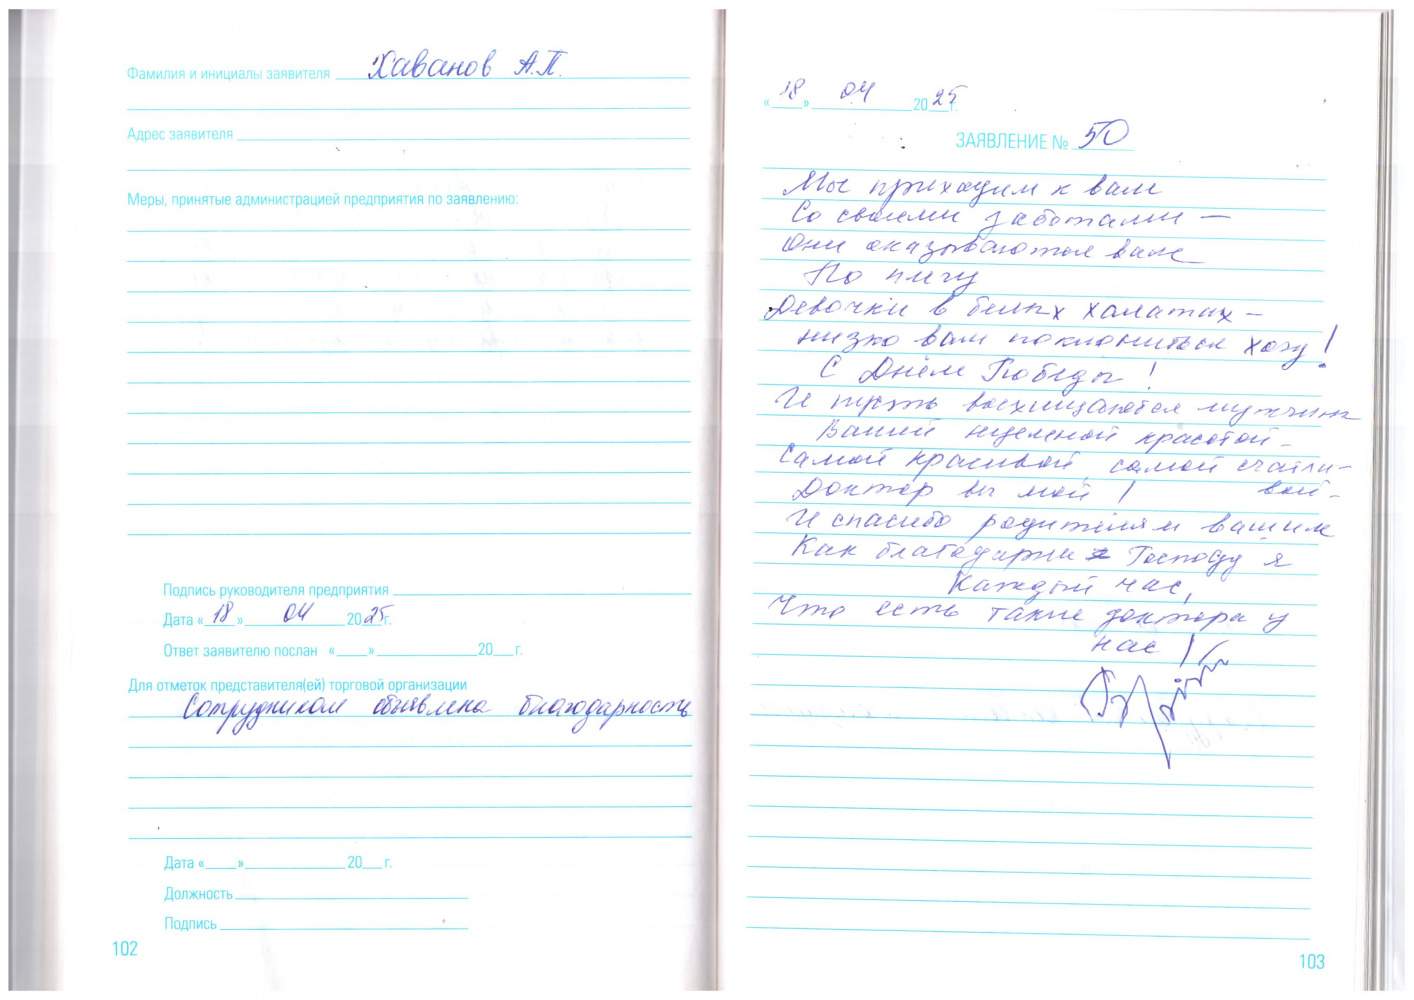 Фамилия и инициалы заявителя Хаванов А.П.
Адрес заявителя
Меры, принятые администрацией предприятия по заявлению:
Подпись руководителя предприятия
Дата «18» 04 2025г.
Ответ заявителю послан «___» ___ 20__г.
Для отметок представителя(ей) торговой организации
Сотрудникам объявлена благодарность
Дата «___» ___ 20__г.
Должность
Подпись
102
«18» 04 2025г.
ЗАЯВЛЕНИЕ № 50
Мы приходим к вам
Со своими заботами —
Они оказываются вам
По плечу
Девочки в белых халатах —
низко вам поклониться хочу!
С Днём Победы!
И пусть восхищаются мужчины
Вашей неземной красотой –
Самой красивой, самой счастли-
вой –
Доктор вы мой!
И спасибо родителям вашим
Как благодарны Господу я
Каждый час,
Что есть такие доктора у
нас!
103